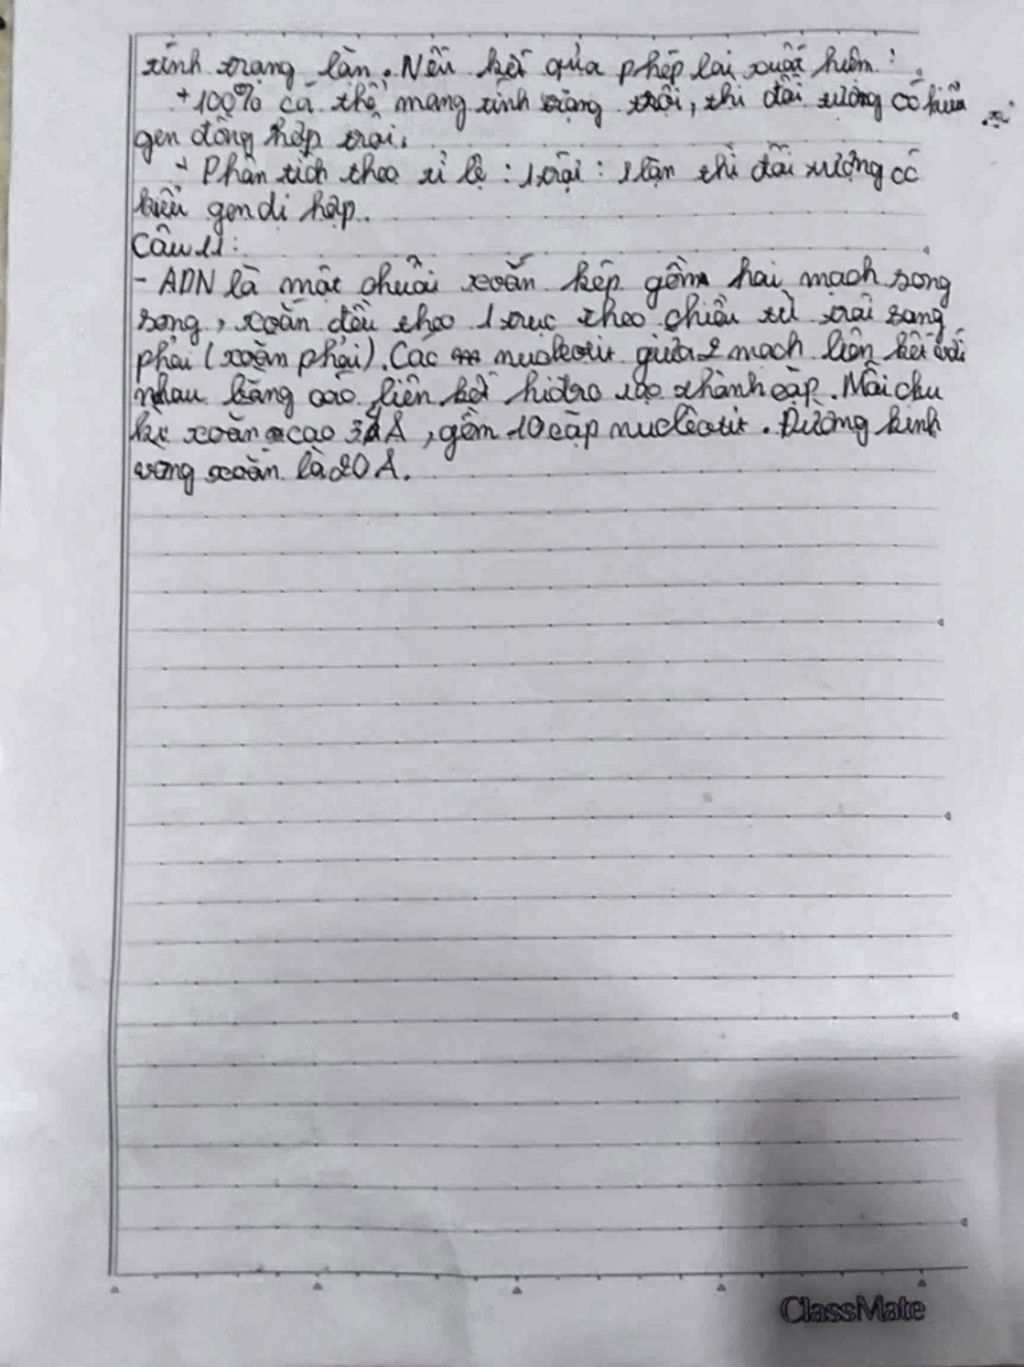 tính trạng lặn. Nếu kết quả phép lai xuất hiện:
+ 100% cá thể mang tính trạng trội, thì đối tượng có kiểu
gen đồng hợp trội.
+ Phân tích theo tỉ lệ: 1 trội : 1 lặn thì đối tượng có
kiểu gen dị hợp.
Câu 11:
- ADN là một chuỗi xoắn kép gồm hai mạch song
song, xoắn đều theo 1 trục theo chiều từ trái sang
phải (xoắn phải). Các nucleotit giữa 2 mạch liên kết với
nhau bằng các liên kết hiđro tạo thành cặp. Mỗi chu
kì xoắn cao 34 Å, gồm 10 cặp nuclêotit. Đường kính
vòng xoắn là 20 Å.
ClassMate